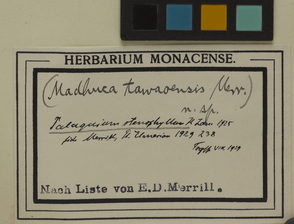 HERBARIUM MONACENSE.
(Madhuca tawaoensis Merr.)
n. sp.
Palaquium stenophyllum H. Lam 1925
fide Merrill, Pl. Elmerian 1929 238
VIII 1929
Nach Liste von E.D.Merrill.